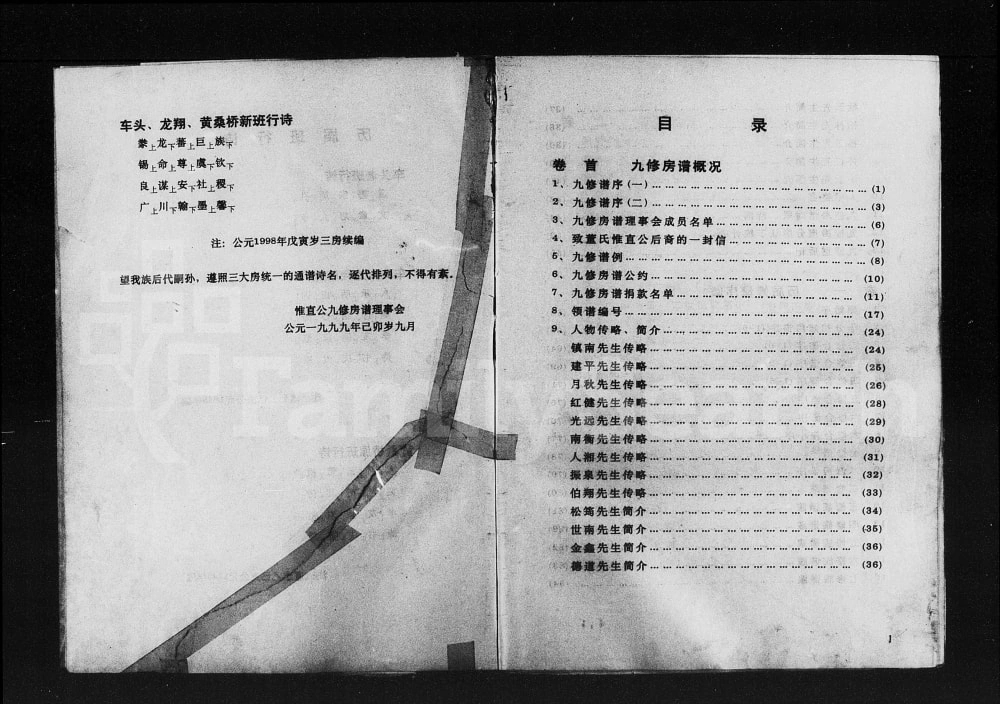 车头、龙翔、黄桑桥新班行诗
肇上龙下蕃上巨上族下
锡上命上尊上虞下钦下
良上谋上安上社上稷下
广上川下翰下墨上馨下
注：公元1998年戊寅岁三房续编
望我族后代嗣孙，遵照三大房统一的通谱诗名，逐代排列，不得有紊。
惟直公九修房谱理事会
公元一九九九年己卯岁九月
目 录
卷 首 九修房谱概况
1、九修谱序(一)………………………………………(1)
2、九修谱序(二)………………………………………(3)
3、九修房谱理事会成员名单……………………………(6)
4、致董氏惟直公后裔的一封信…………………………(7)
5、九修谱例………………………………………………(8)
6、九修房谱公约…………………………………………(10)
7、九修房谱捐款名单……………………………………(11)
8、领谱编号………………………………………………(17)
9、人物传略、简介………………………………………(24)
镇南先生传略……………………………………………(24)
建平先生传略……………………………………………(25)
月秋先生传略……………………………………………(26)
红健先生传略……………………………………………(28)
光远先生传略……………………………………………(29)
南衡先生传略……………………………………………(30)
人湘先生传略……………………………………………(31)
振泉先生传略……………………………………………(32)
伯翔先生传略……………………………………………(33)
松筠先生简介……………………………………………(34)
世南先生简介……………………………………………(35)
金鑫先生简介……………………………………………(36)
德道先生简介……………………………………………(36)
1